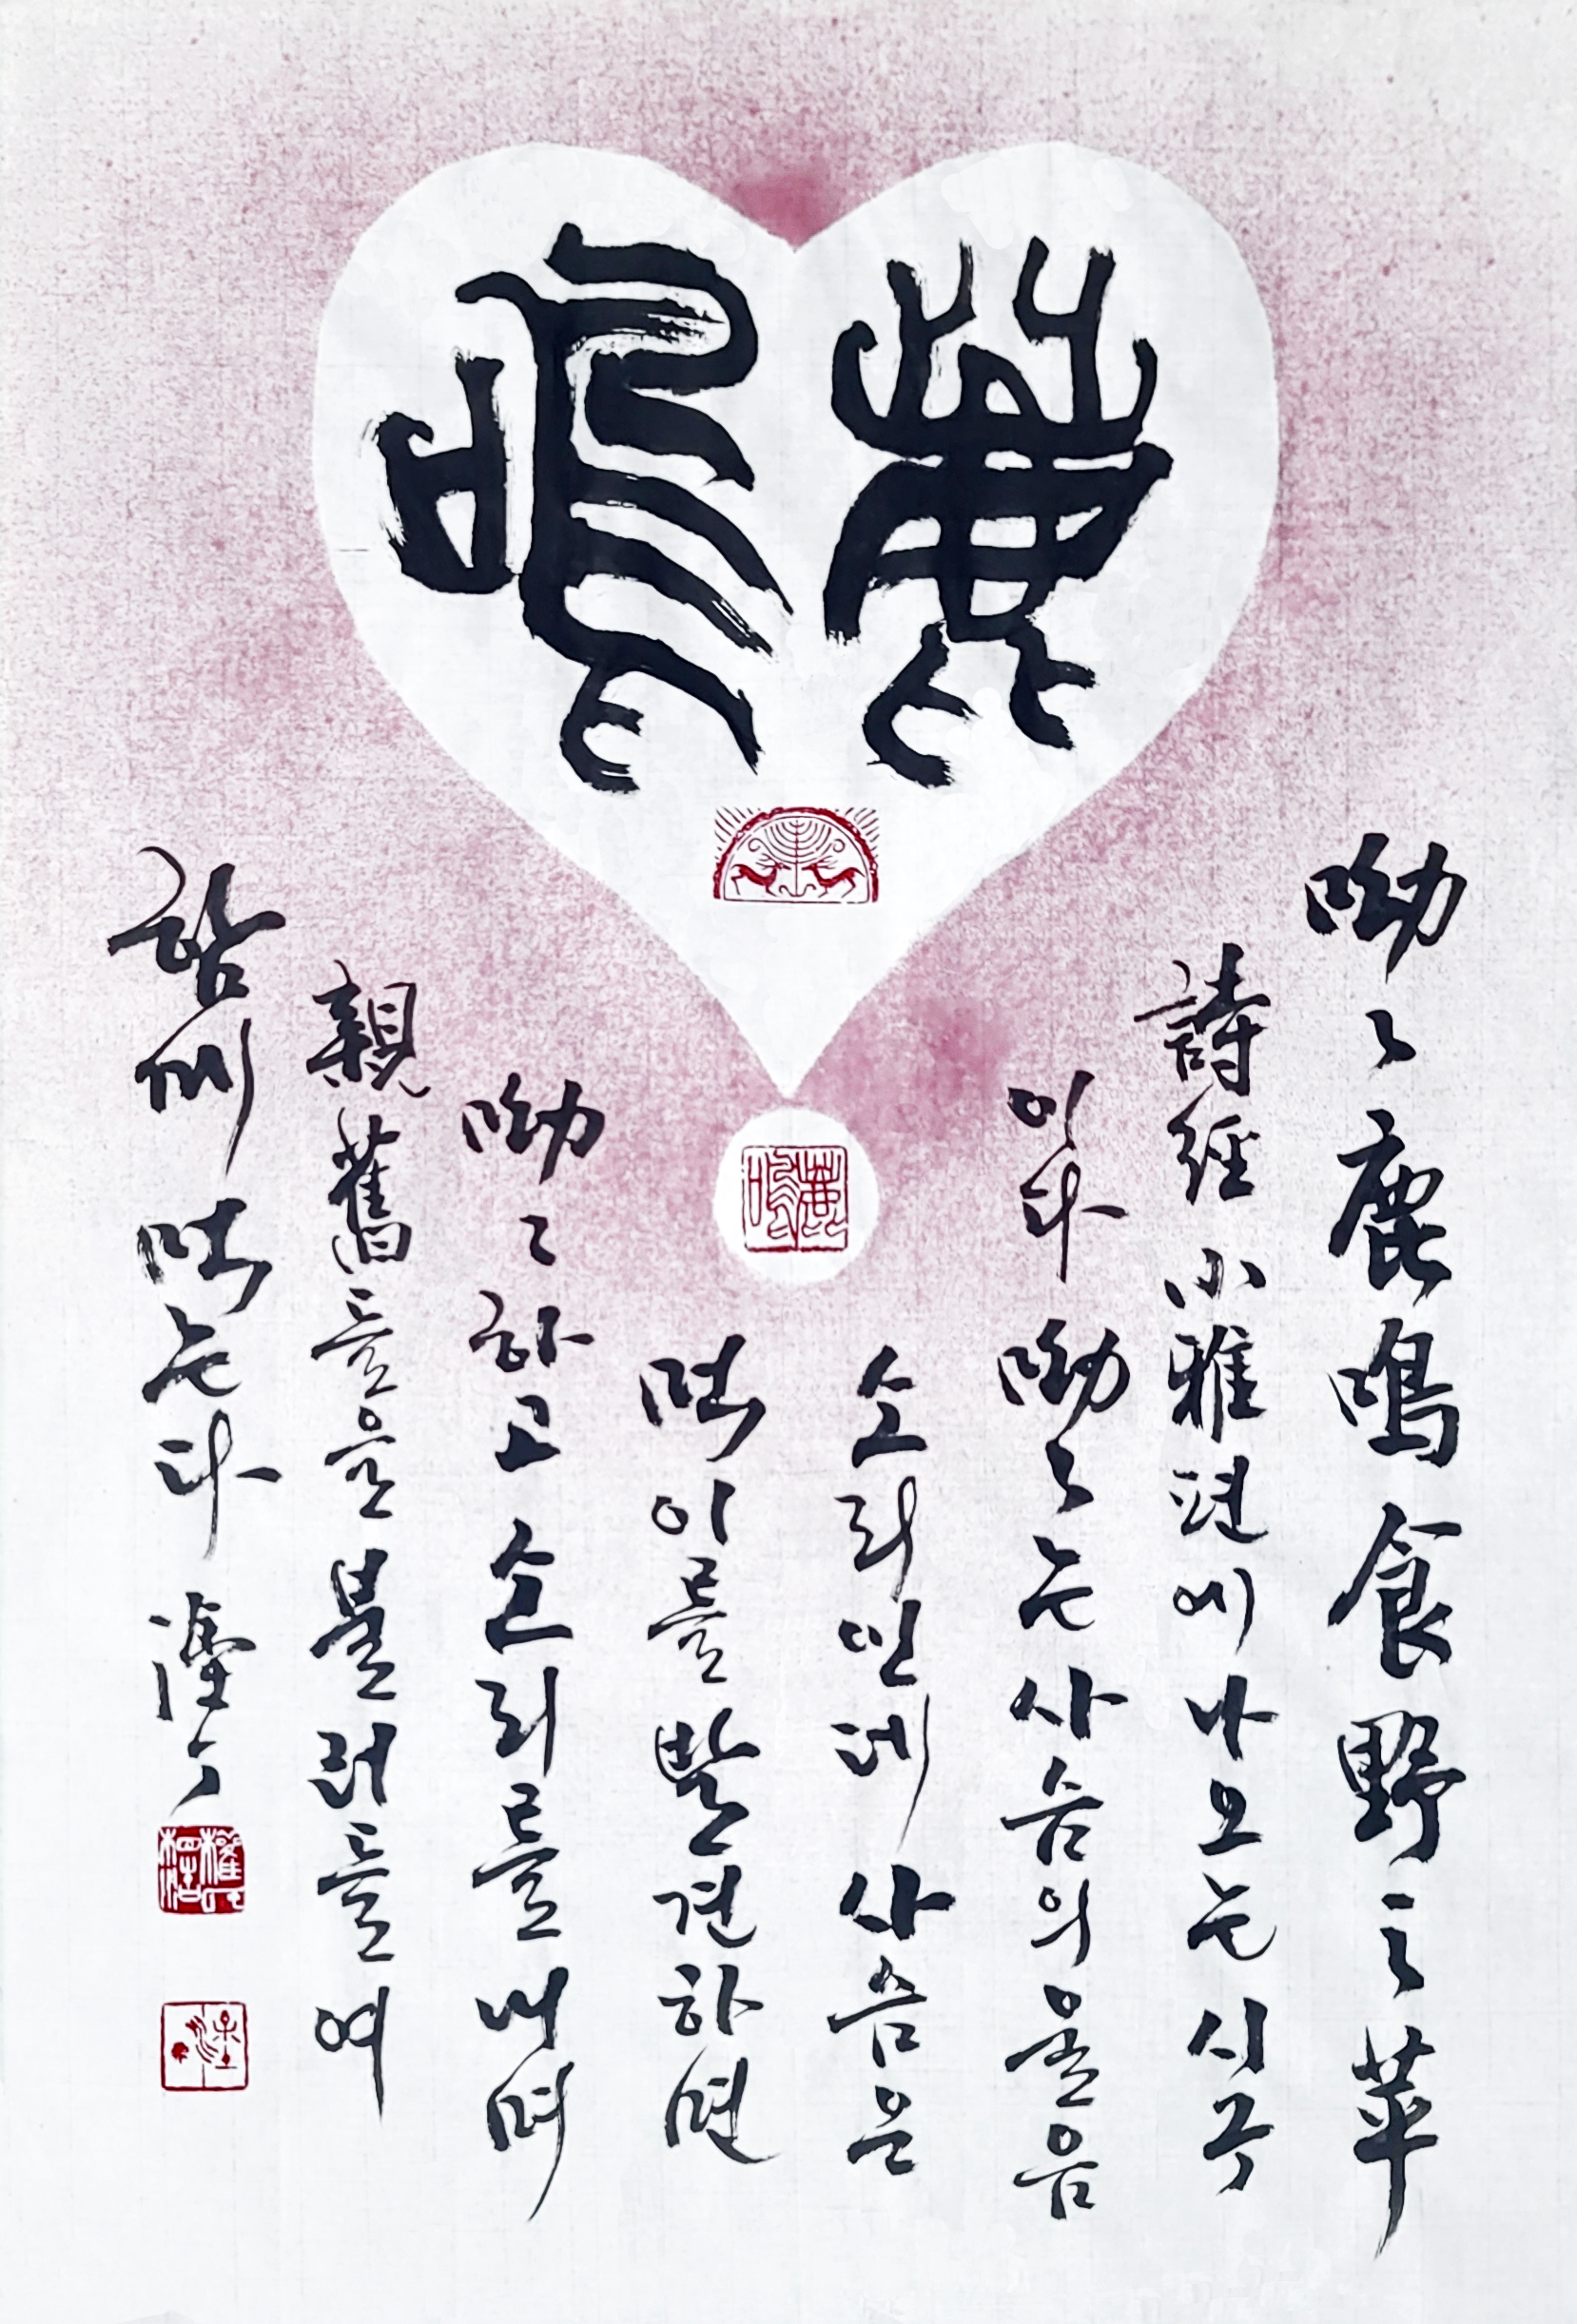 鹿鳴
鹿鳴
呦〻鹿鳴食野之苹
詩經小雅편에나오는시구
이다 呦〻는사슴의울음
소리인데사슴은
먹이를발견하면
呦〻하고소리를내며
親舊들을불러들여
함께먹는다